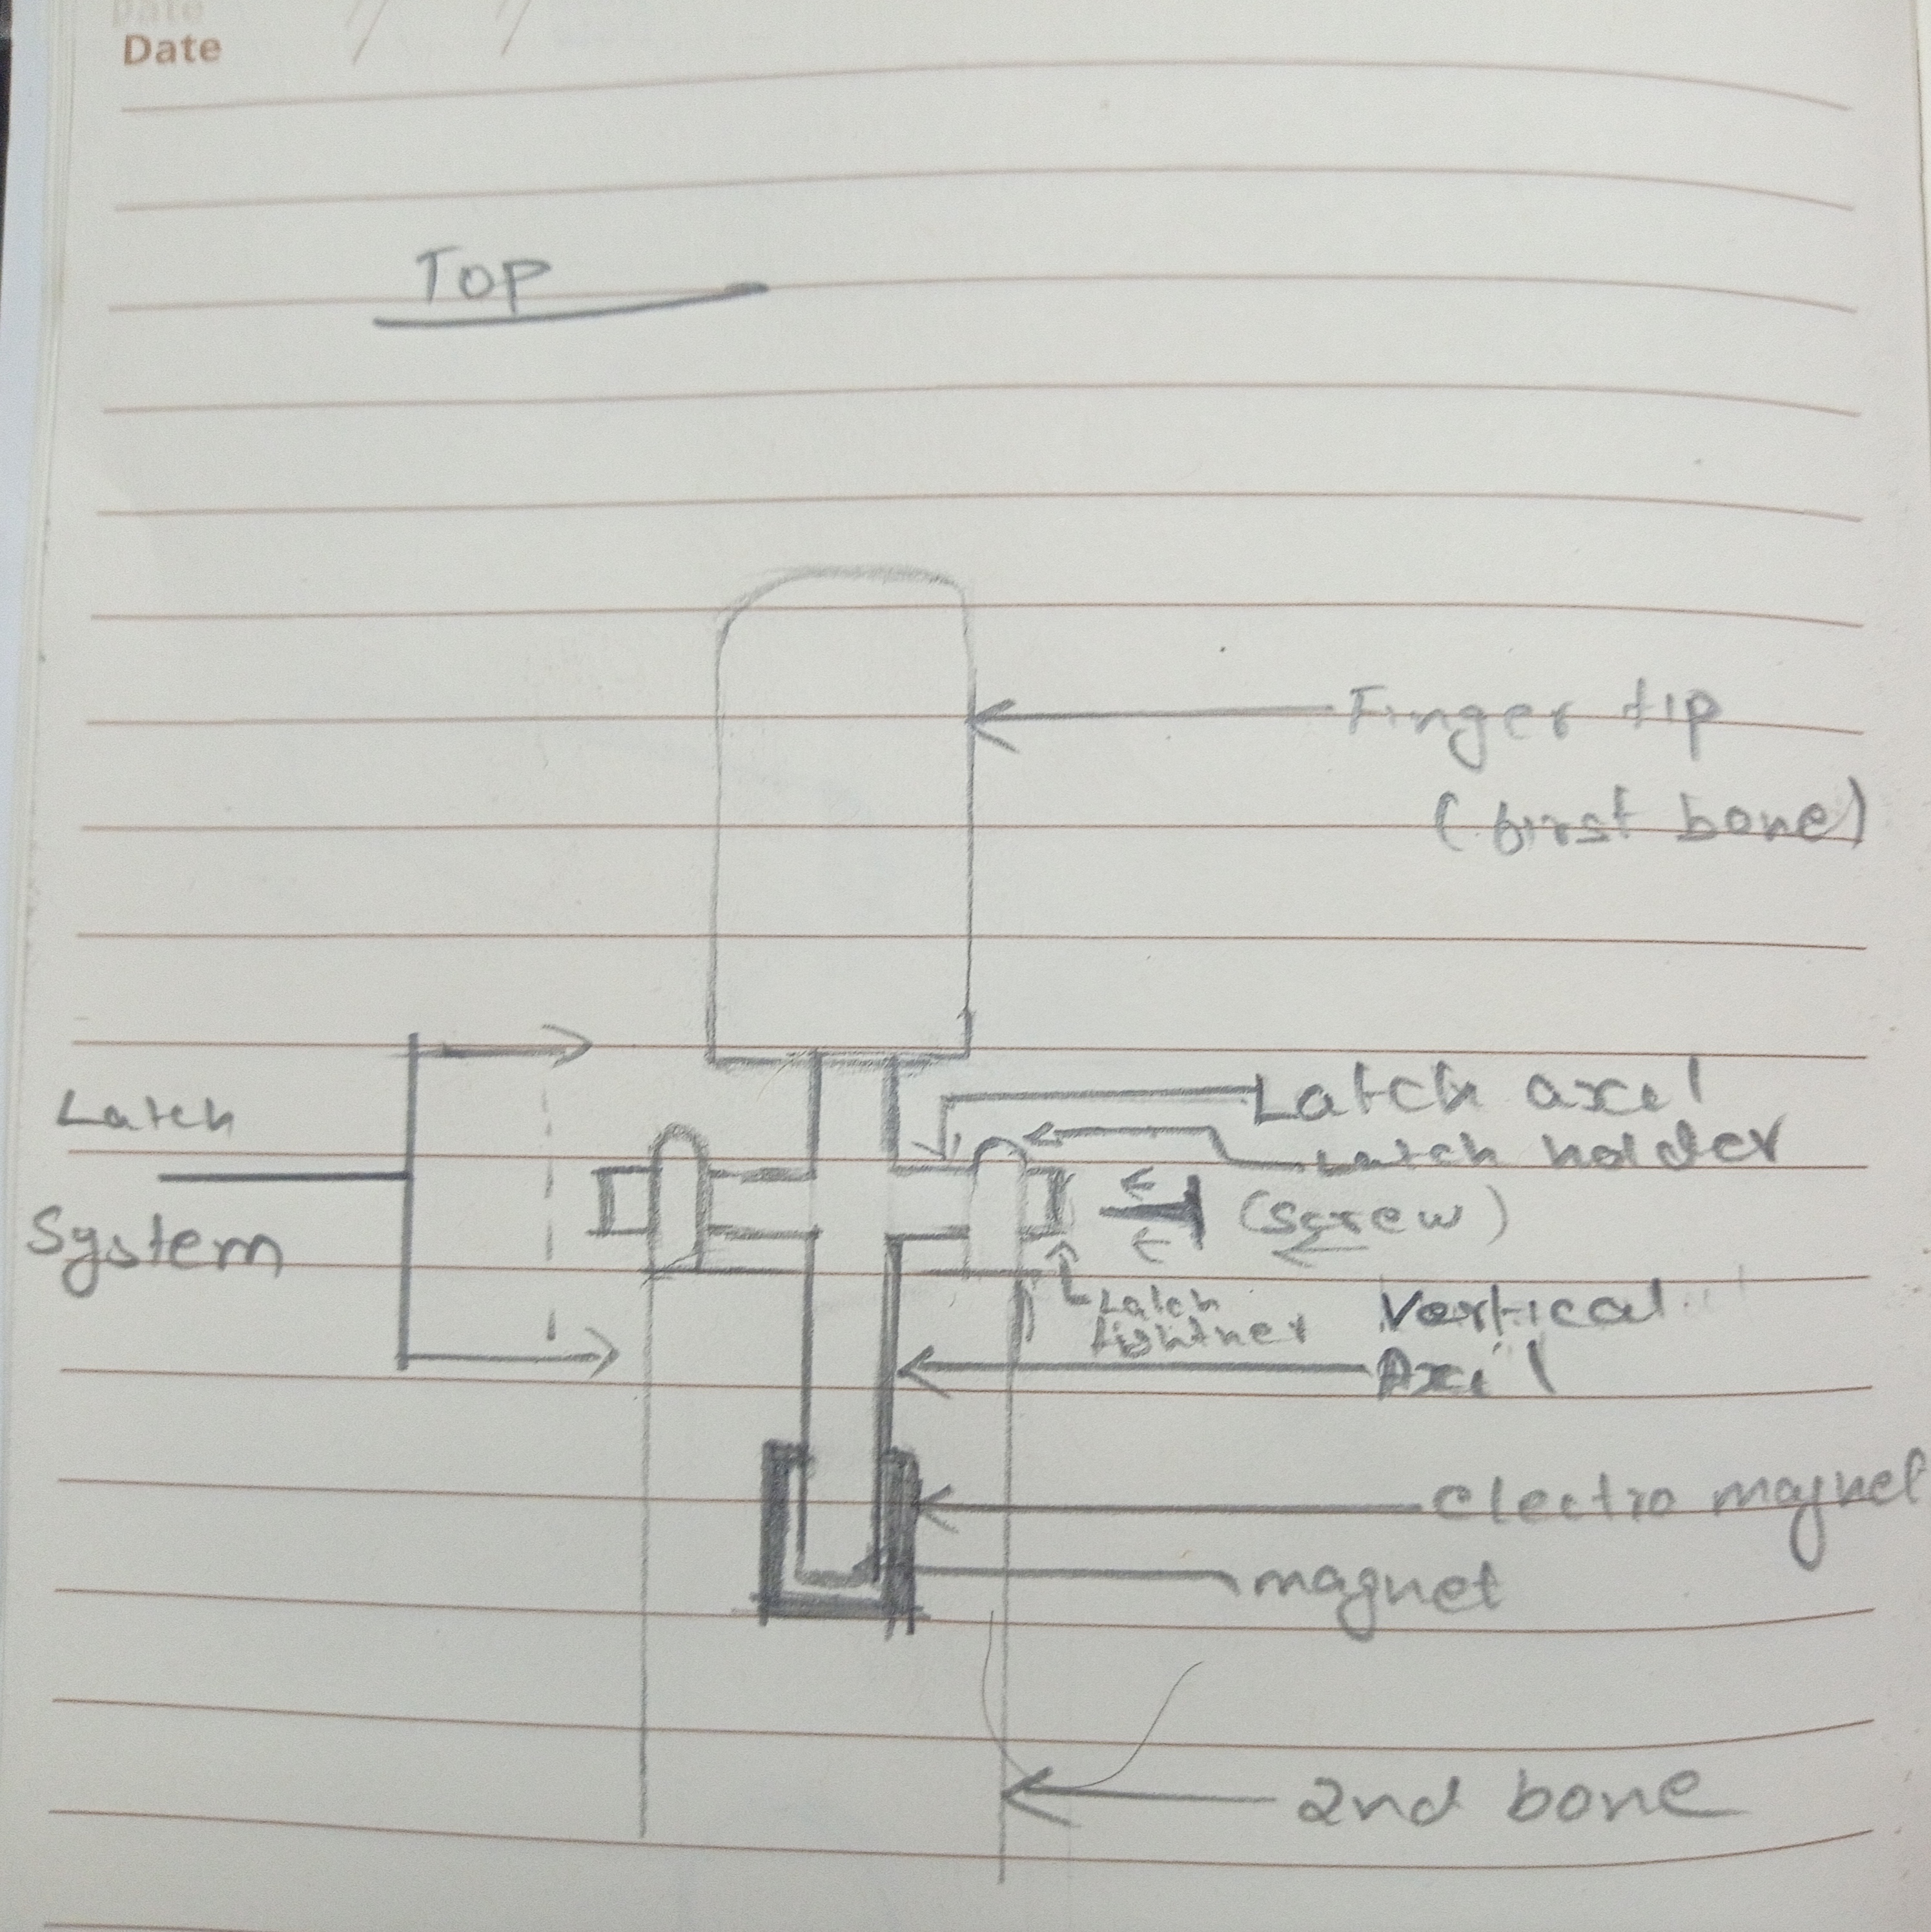 Date
Date
Top
Finger tip
(first bone)
Latch axel
Latch
Latch holder
(Screw)
System
Latch
tightner
Vertical
Axil
electro magnet
magnet
2nd bone